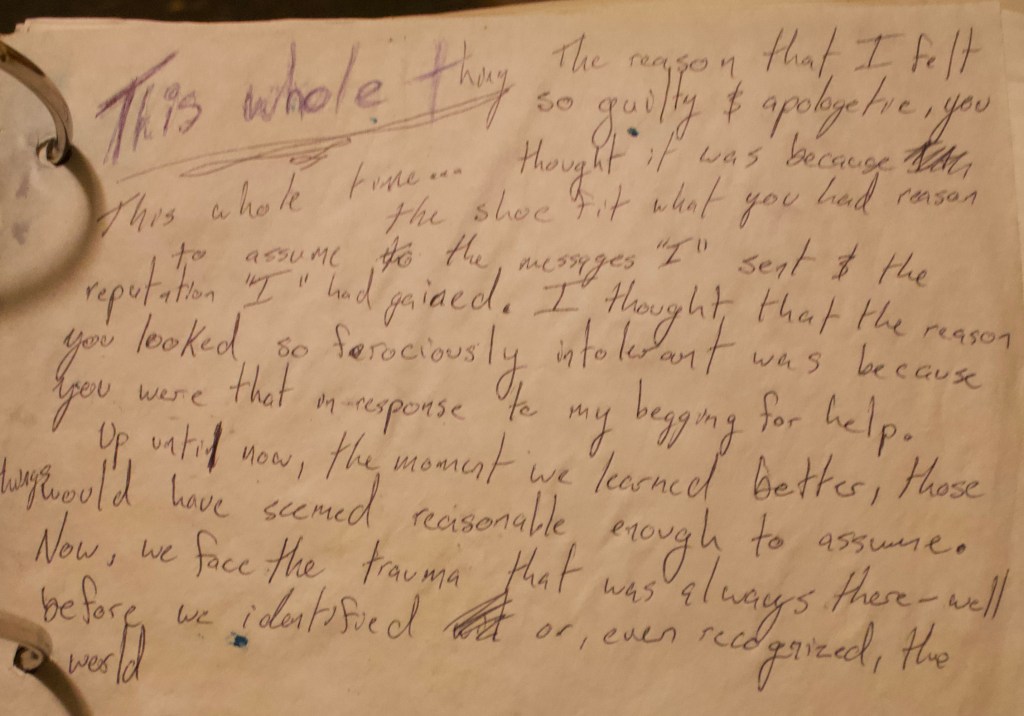 This whole thing
The reason that I felt
so guilty & apologetic, you
This whole time... thought it was because
the shoe fit what you had reason
to assume the messages "I" sent & the
reputation "I" had gained. I thought that the reason
you looked so ferociously intolerant was because
you were that in-response to my begging for help.
Up until now, the moment we learned better, those
things would have seemed reasonable enough to assume.
Now, we face the trauma that was always there-well
before we identified or, even recognized, the
world